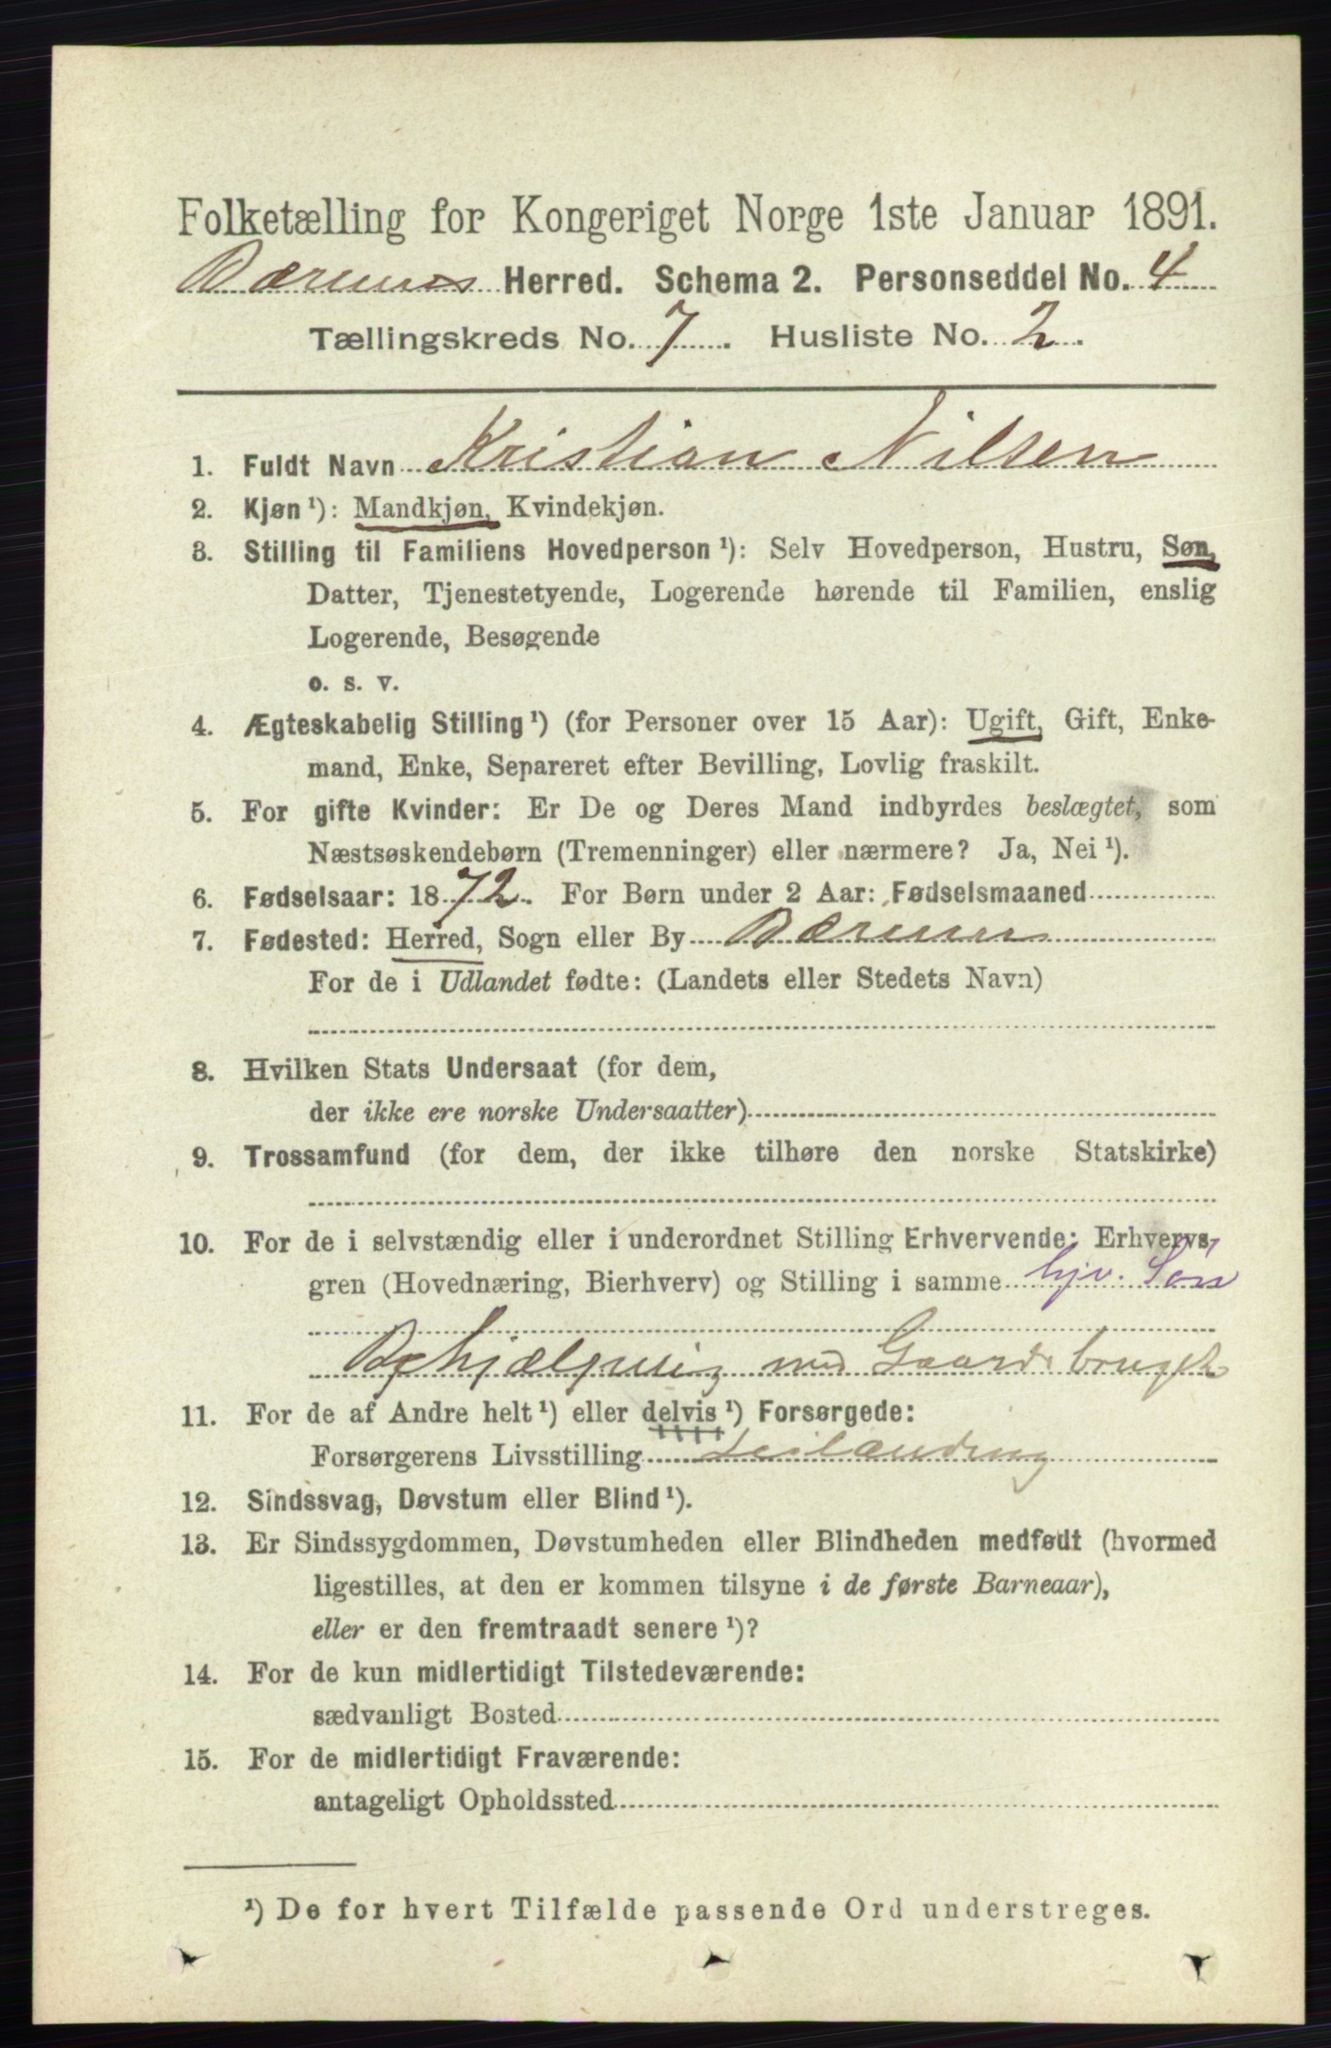 Folketælling for Kongeriget Norge 1ste Januar 1891.
Bærums Herred. Schema 2. Personseddel No. 4
Tællingskreds No. 7. Husliste No. 2.
1. Fuldt Navn Kristian Nilsen
2. Kjøn¹): Mandkjøn, Kvindekjøn.
3. Stilling til Familiens Hovedperson¹): Selv Hovedperson, Hustru, Søn,
Datter, Tjenestetyende, Logerende hørende til Familien, enslig
Logerende, Besøgende
o. s. v.
4. Ægteskabelig Stilling¹) (for Personer over 15 Aar): Ugift, Gift, Enke-
mand, Enke, Separeret efter Bevilling, Lovlig fraskilt.
5. For gifte Kvinder: Er De og Deres Mand indbyrdes beslægtet, som
Næstsøskendebørn (Tremenninger) eller nærmere? Ja, Nei¹).
6. Fødselsaar: 1872. For Børn under 2 Aar: Fødselsmaaned
7. Fødested: Herred, Sogn eller By Bærum
For de i Udlandet fødte: (Landets eller Stedets Navn)
8. Hvilken Stats Undersaat (for dem,
der ikke ere norske Undersaatter)
9. Trossamfund (for dem, der ikke tilhøre den norske Statskirke)
10. For de i selvstændig eller i underordnet Stilling Erhvervende: Erhvervs-
gren (Hovednæring, Bierhverv) og Stilling i samme hjv. Søn
Behjælpelig med Gaardsbruget
11. For de af Andre helt¹) eller delvis¹) Forsørgede:
Forsørgerens Livsstilling Leilænding
12. Sindssvag, Døvstum eller Blind¹).
13. Er Sindssygdommen, Døvstumheden eller Blindheden medfødt (hvormed
ligestilles, at den er kommen tilsyne i de første Barneaar),
eller er den fremtraadt senere¹)?
14. For de kun midlertidigt Tilstedeværende:
sædvanligt Bosted
15. For de midlertidigt Fraværende:
antageligt Opholdssted
¹) De for hvert Tilfælde passende Ord understreges.